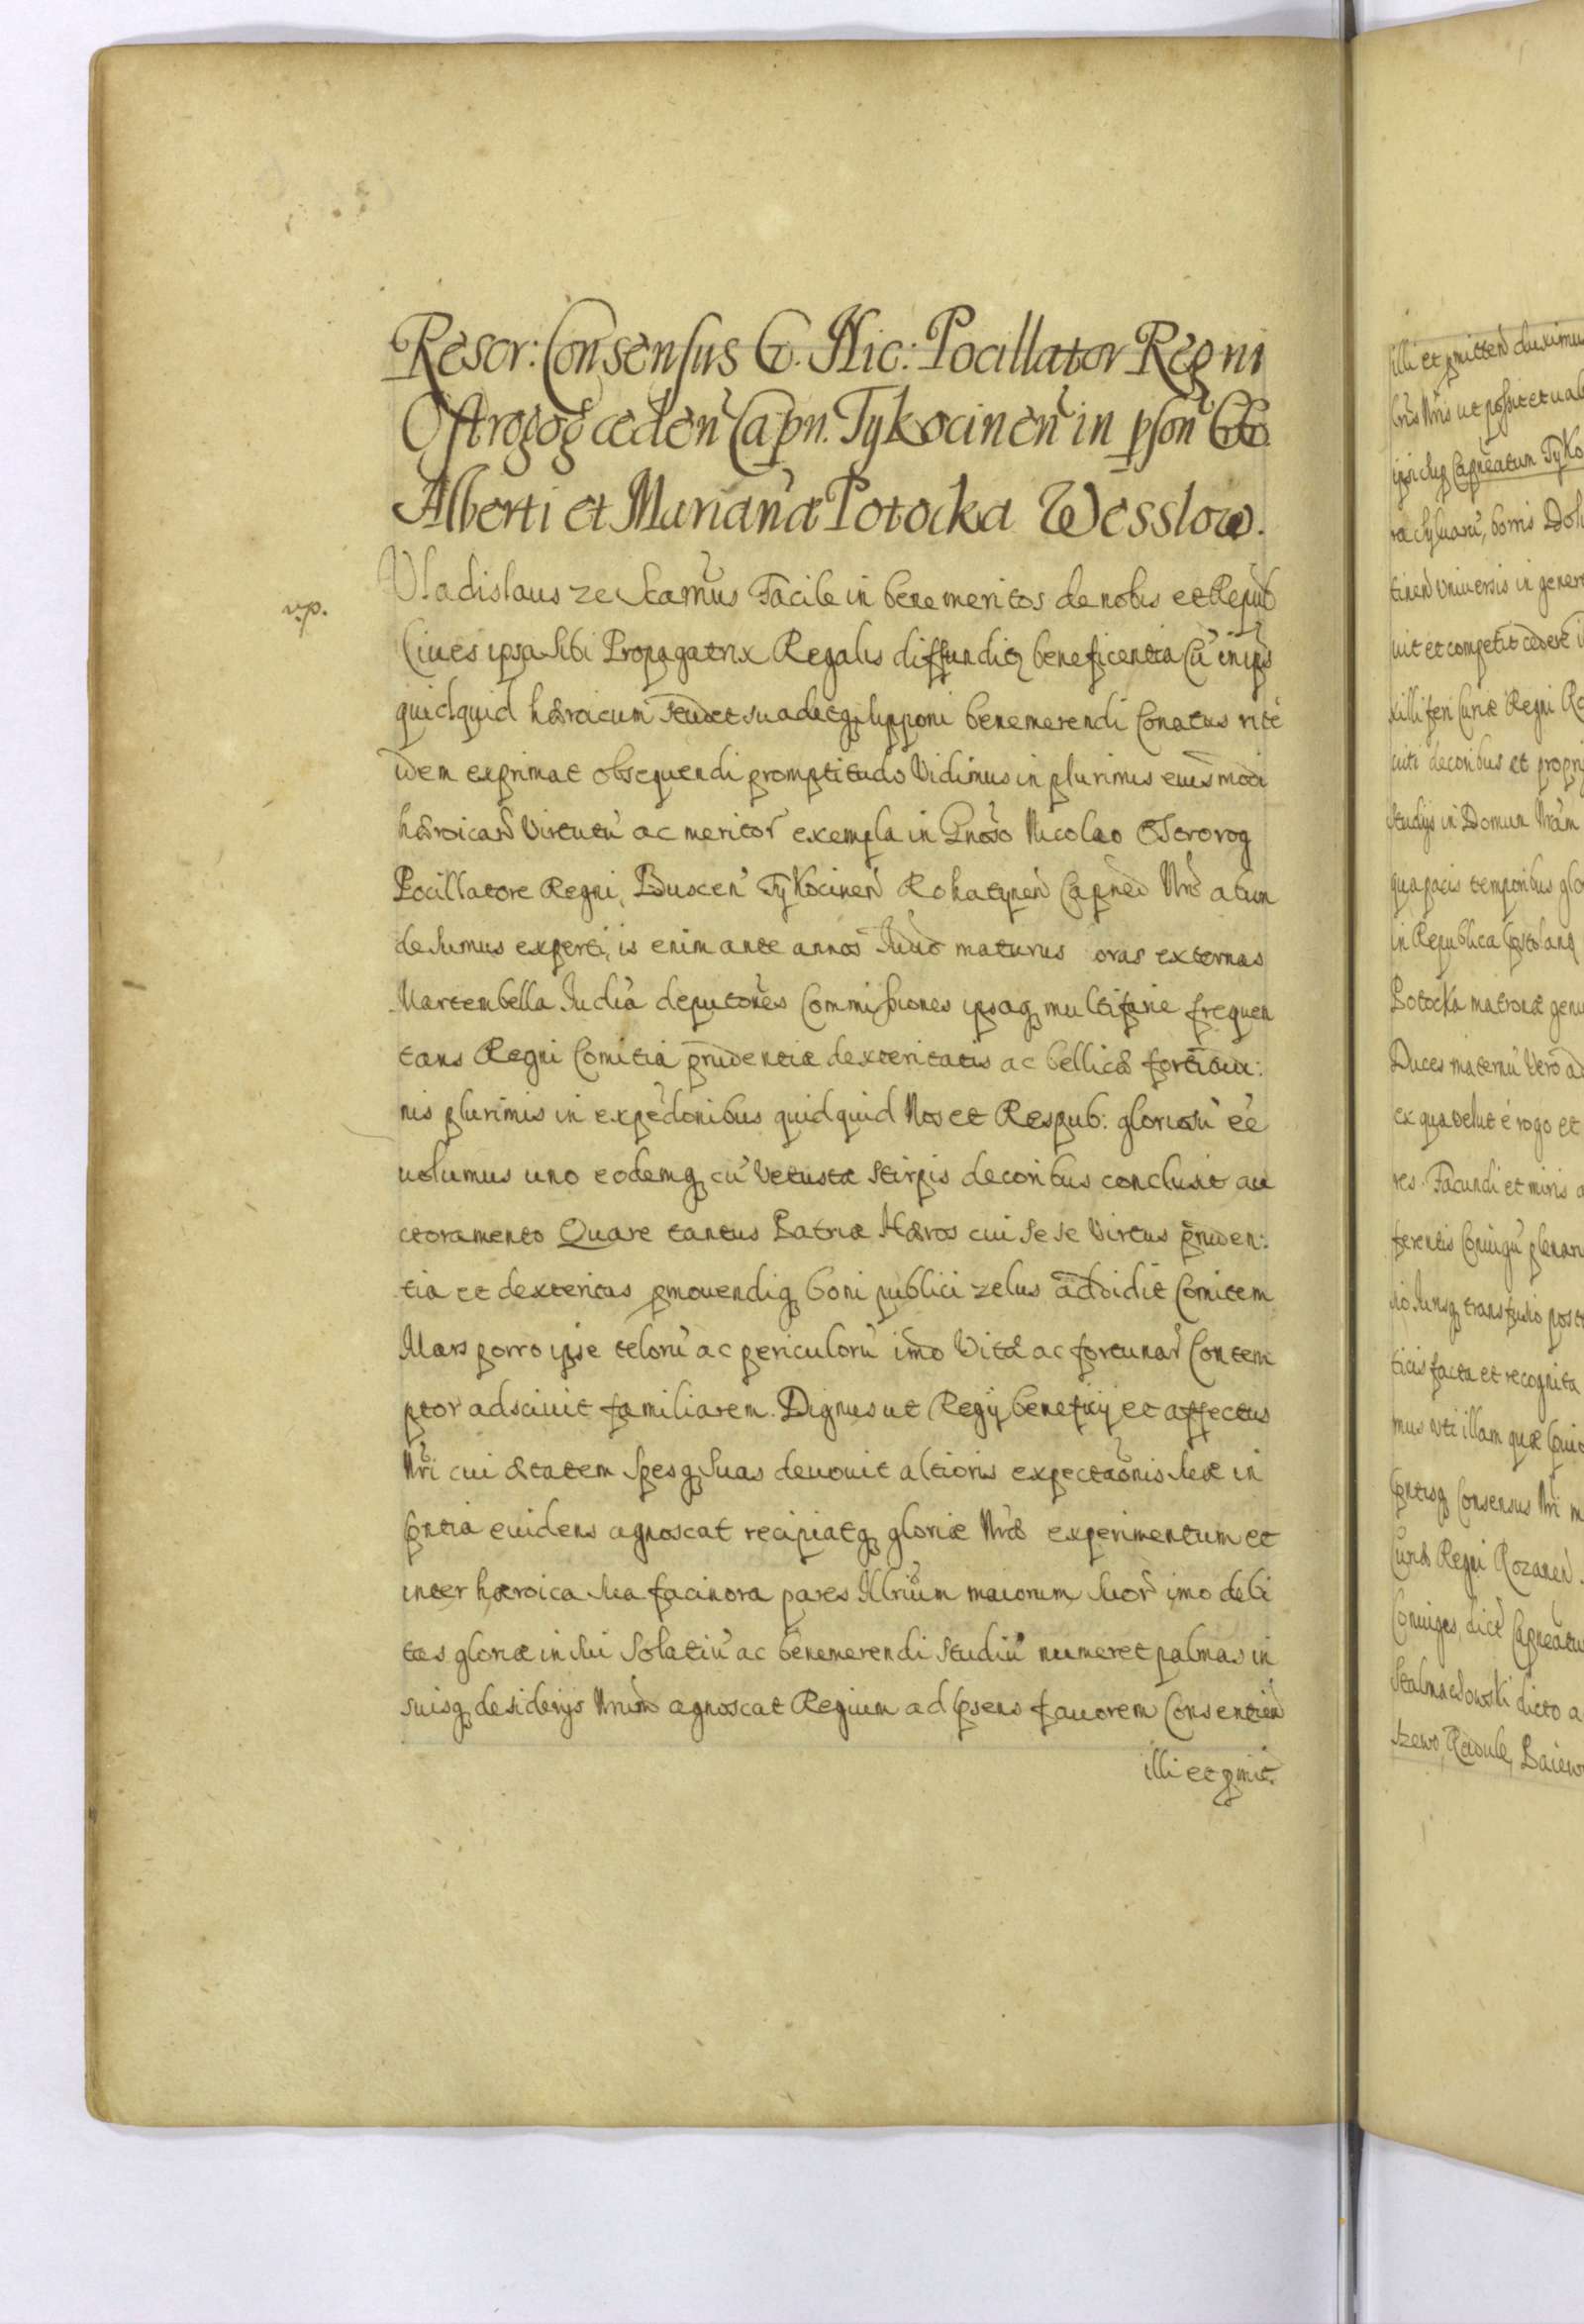 Rescr: Consensus G. Nic: Pocillator Regni
Ostrogog ceden Capn. Tykocinen in pson GG
Alberti et Marianæ Potocka Wesslow.
vp.
Vladislaus ze Scamus Facile in bene meritos de nobis et Repub
Ciues ipsa sibi Propagatrix Regalis diffundit beneficentia Cu in ips
quidquid hæroicum suadetq supponi benemerendi Conatus rite
idem exprimat obsequendi promptitudo Vidimus in plurimis euismodi
hæroicar Virtutu ac meritor exempla in Gnoso Nicolao Ostrorog
Pocillatore Regni, Buscen Tykocinen Rohatynen Capneo Nro abun
de sumus experti, is enim ante annos Iudio maturus oras externas
Marten bella Iudia deputones Commissiones ipsaq multifarie frequen
tans Regni Comitia prudentiæ dexteritatis ac bellicæ fortitudi:
nis plurimis in expedonibus quidquid Nos et Respub: gloriosu ee
uolumus uno eodemq cu Vetustæ Stirpis decoribus conclusit au
ctoramento Quare tantus Patriæ Hæros cui se se Virtus pruden:
tia et dexteritas pmouendiq boni publici zelus addidit Comitem
Mars porro ipse teloru ac periculoru imo Vitæ ac fortunar Contem
ptor adsciuit familiarem. Dignus ut Regij beneficij et affectus
Nri cui ætatem Spesq Suas deuouit altioris expectaonis suæ in
Cpntia euidens agnoscat recipiatq gloriæ Nræ experimentum et
inter hæroica sua facinora pares Illrium maiorum suor imo debi
tas gloriæ in sui Solatiu ac benemerendi Studiu numeret palmas in
suisq desiderijs Nrum agnoscat Regium ad Cpsens fauorem Consentien
illi et pmit.
illi et pmitten duximus
bris Nris ut possit et uale
ipsi Capneatum Tyko
tinen Vniuersis in genere
uit et competit cedere
xilliferi Curiæ Regni Ro
decoribus et proprijs
studijs in Domum Nram
qua pacis temporibus glo
in Republica
Potocka matronæ genu
Duces maternu Vero ad
ex qua velut e rogo et
res. Facundi et miris a
ferentis Coniugu plenari
transfusio post
ticis facta et recognita
mus uti illam quæ
Consensus Nri m
Curiæ Regni Rozanen
Coniuges, dict Capneatu
dicto a
szewo, Radule, Baiewo